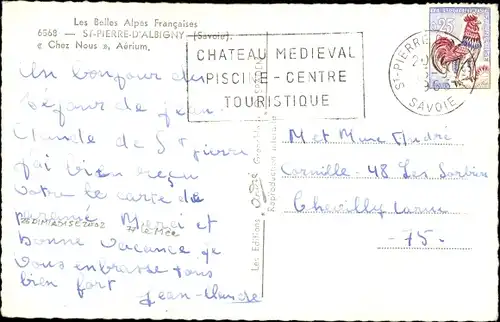 Les Belles Alpes Françaises
6568 — ST-PIERRE-D'ALBIGNY (Savoie).
« Chez Nous », Aérium.
CHATEAU MEDIEVAL
PISCINE - CENTRE
TOURISTIQUE
ST-PIERRE
SAVOIE
0,25
Un bonjour du
séjour de jean
Claude de St pierre
j'ai bien reçu
votre carte de
Merci et
bonne vacance je
vous enbrasse tous
bien fort
jean-Claude
Les Editions André Grenoble
Reproduction interdite
Met Mme André
Cornille - 48 Les Sorbiers
Chevilly Larue
-75-